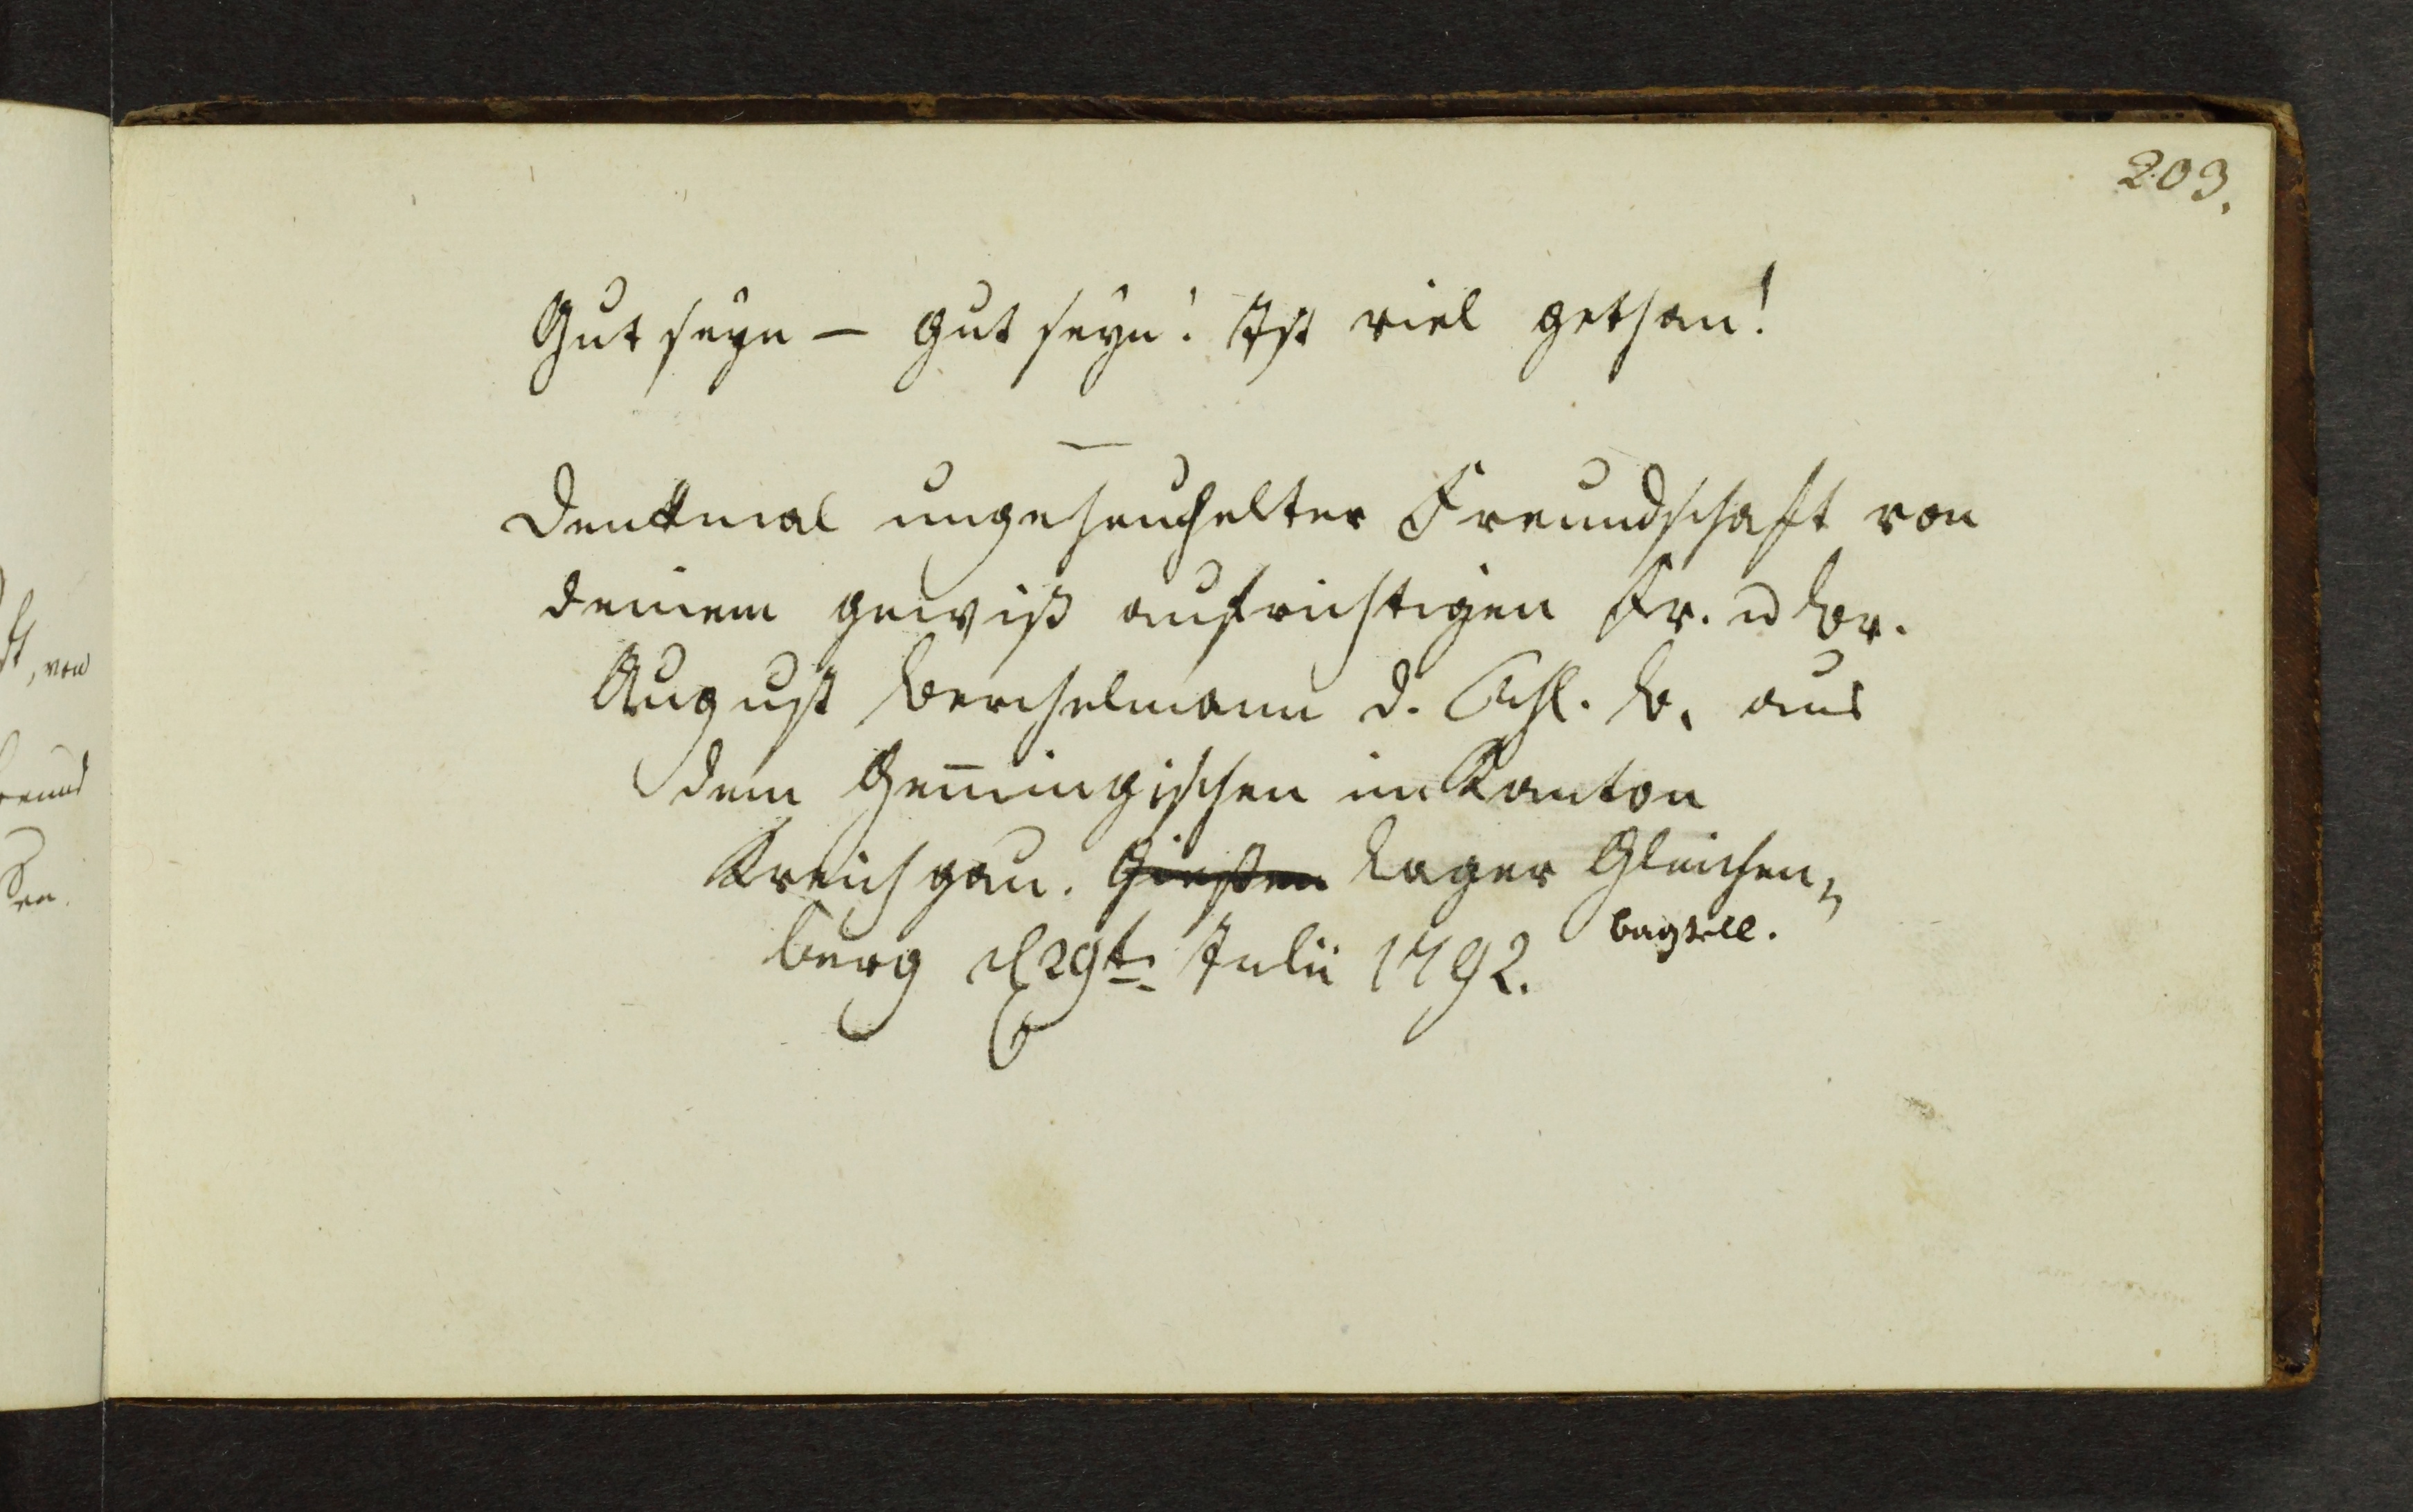 203.
Gut seyn – gut seyn! Ist viel gethan!
Denkmal ungeheuchelter Freundschaft von
deinem gewiß aufrichtigen Fr. u Br.
August Berchelmann d. B. aus
dem Gem̅ingischen im Kanton
Kreichgau. Gießen Lager Gleichen„
berg d 29t. Julii 1792.
, von